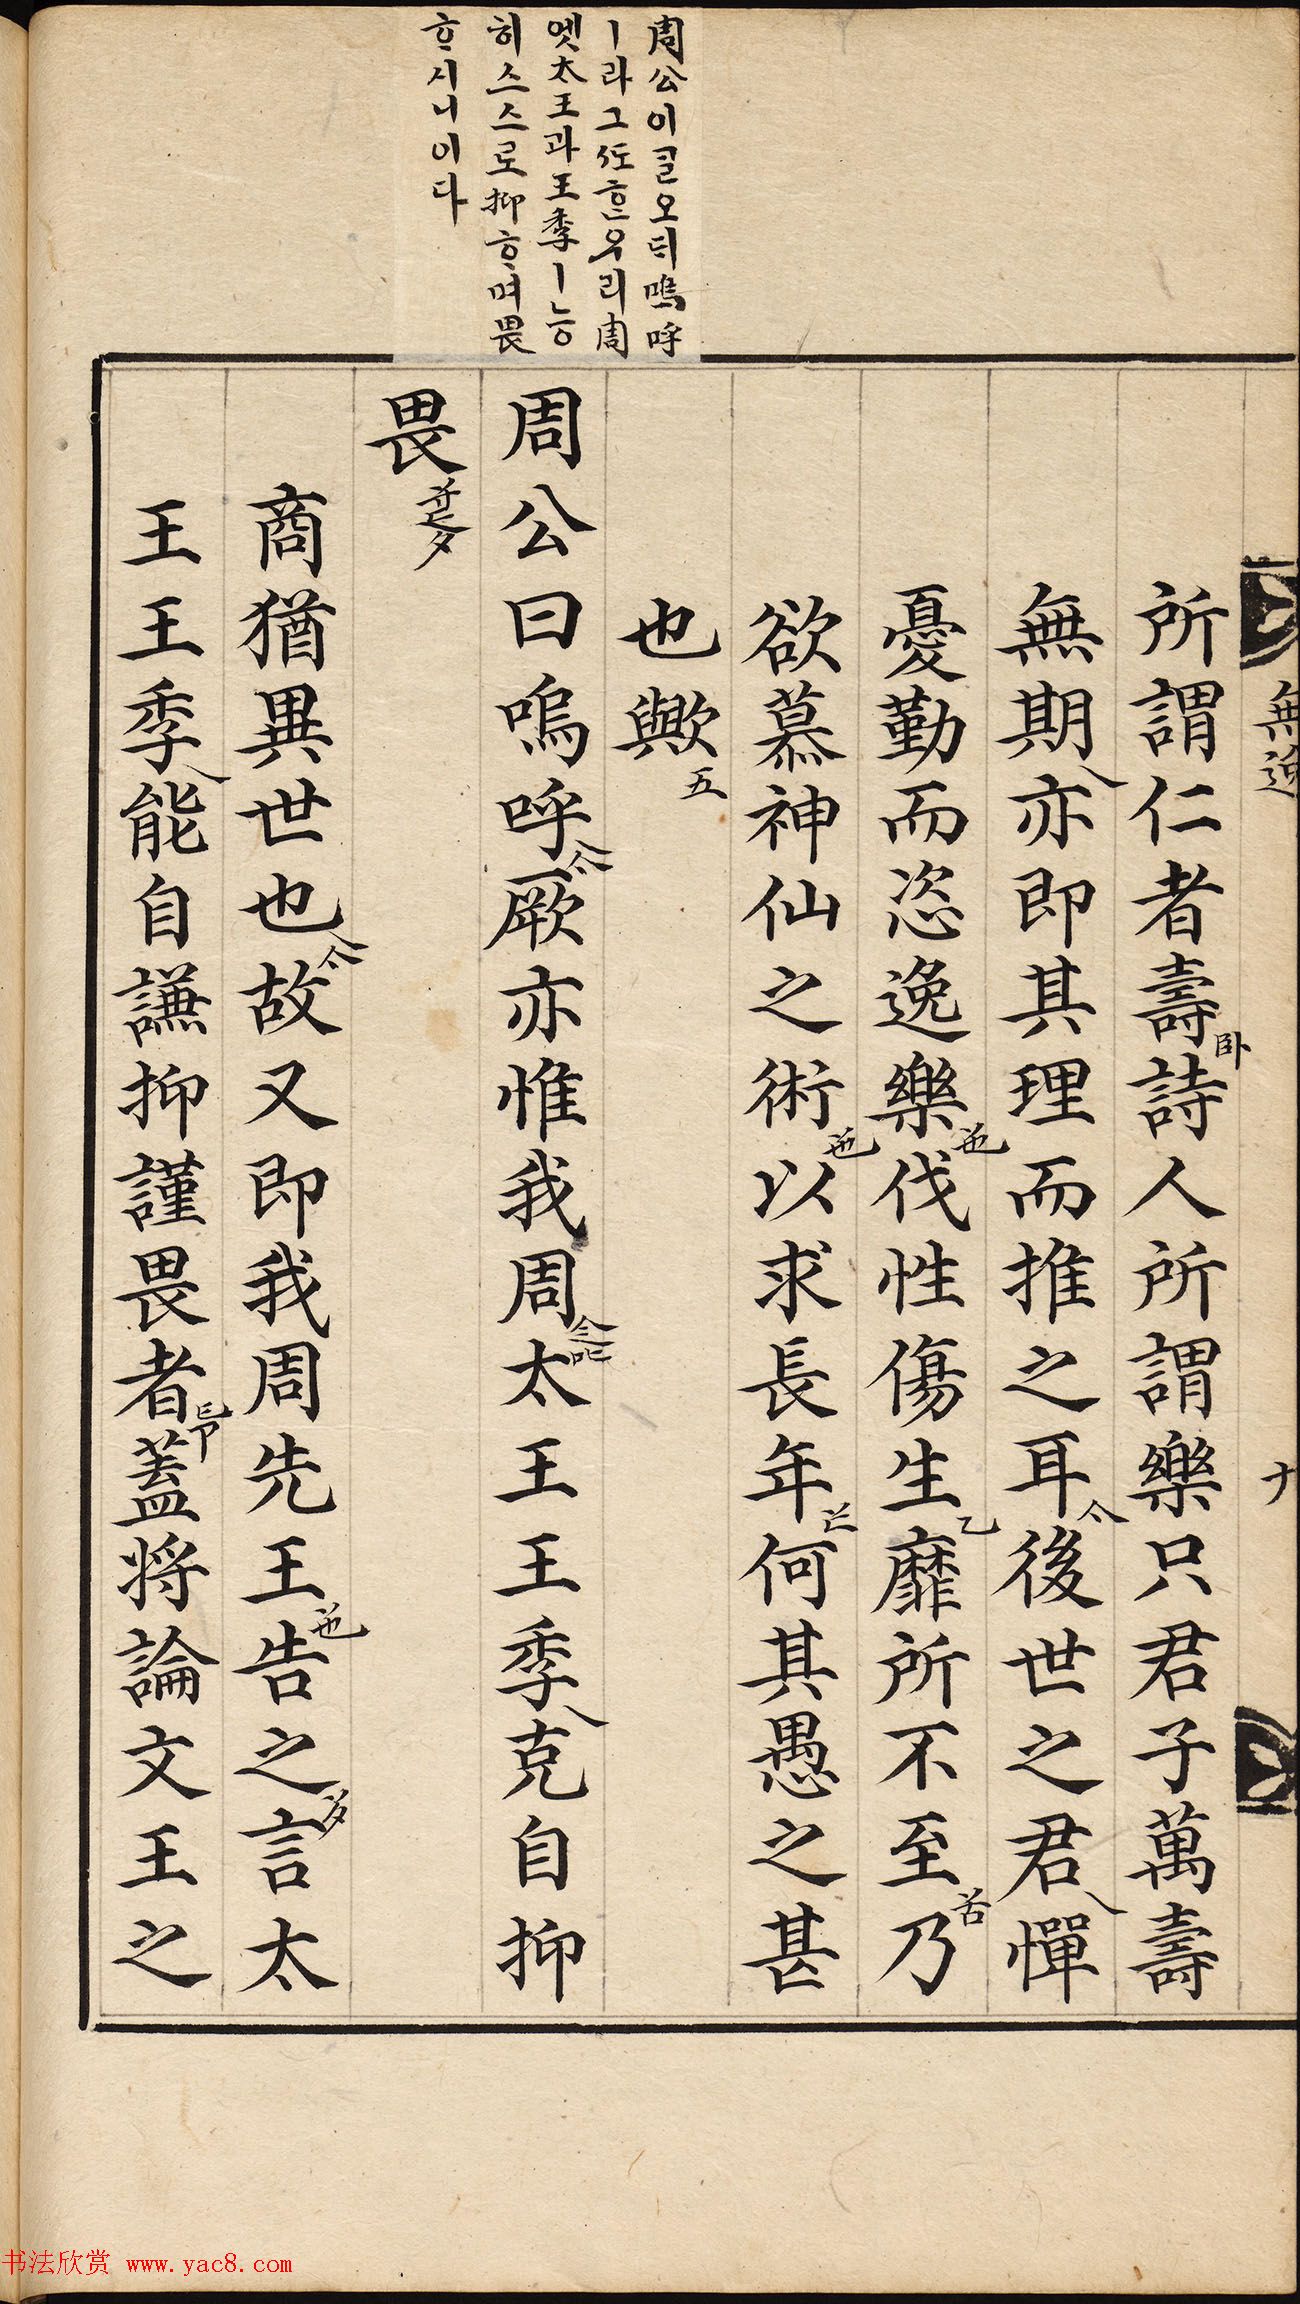 周公이ᄀᆞᆯ오ᄃᆡ嗚呼
ㅣ라그後ᄒᆞᆫ우리周
엣太王과王季ㅣ능
히스스로抑ᄒᆞ며畏
ᄒᆞ시니이다
無逸 十
所謂仁者壽卧詩人所謂樂只君子萬壽
無期亦即其理而推之耳後世之君憚
憂勤而恣逸樂伐性傷生乙靡所不至乃
欲慕神仙之術以求長年何其愚之甚
也歟五
周公曰嗚呼厥亦惟我周太王王季克自抑
畏
商猶異世也故又即我周先王告之言太
王王季能自謙抑謹畏者蓋將論文王之
书法欣赏 www.yac8.com